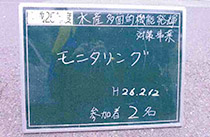 水産多面的機能発揮
対策事業
モニタリング
H26.2.12
参加者 2名